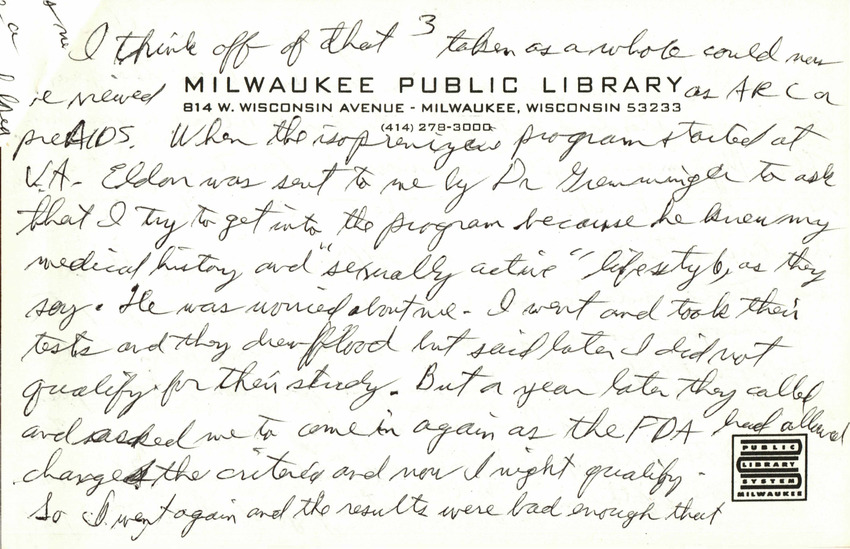 I think off of that 3 taken as a whole could now
be viewed as ARC or
MILWAUKEE PUBLIC LIBRARY
814 W. WISCONSIN AVENUE - MILWAUKEE, WISCONSIN 53233
(414) 278-3000
preAIDS. When the isoprenizine program started at
V.A. Eldon was sent to me by Dr Gremminger to ask
that I try to get into the program because he knew my
medical history and "sexually active" lifestyle, as they
say. He was worried about me. I went and took their
tests and they drew blood but said later I did not
qualify for their study. But a year later they called
and asked me to come in again as the FDA had allowed
changes the criteria and now I might qualify.
So I went again and the results were bad enough that
PUBLIC
LIBRARY
SYSTEM
MILWAUKEE